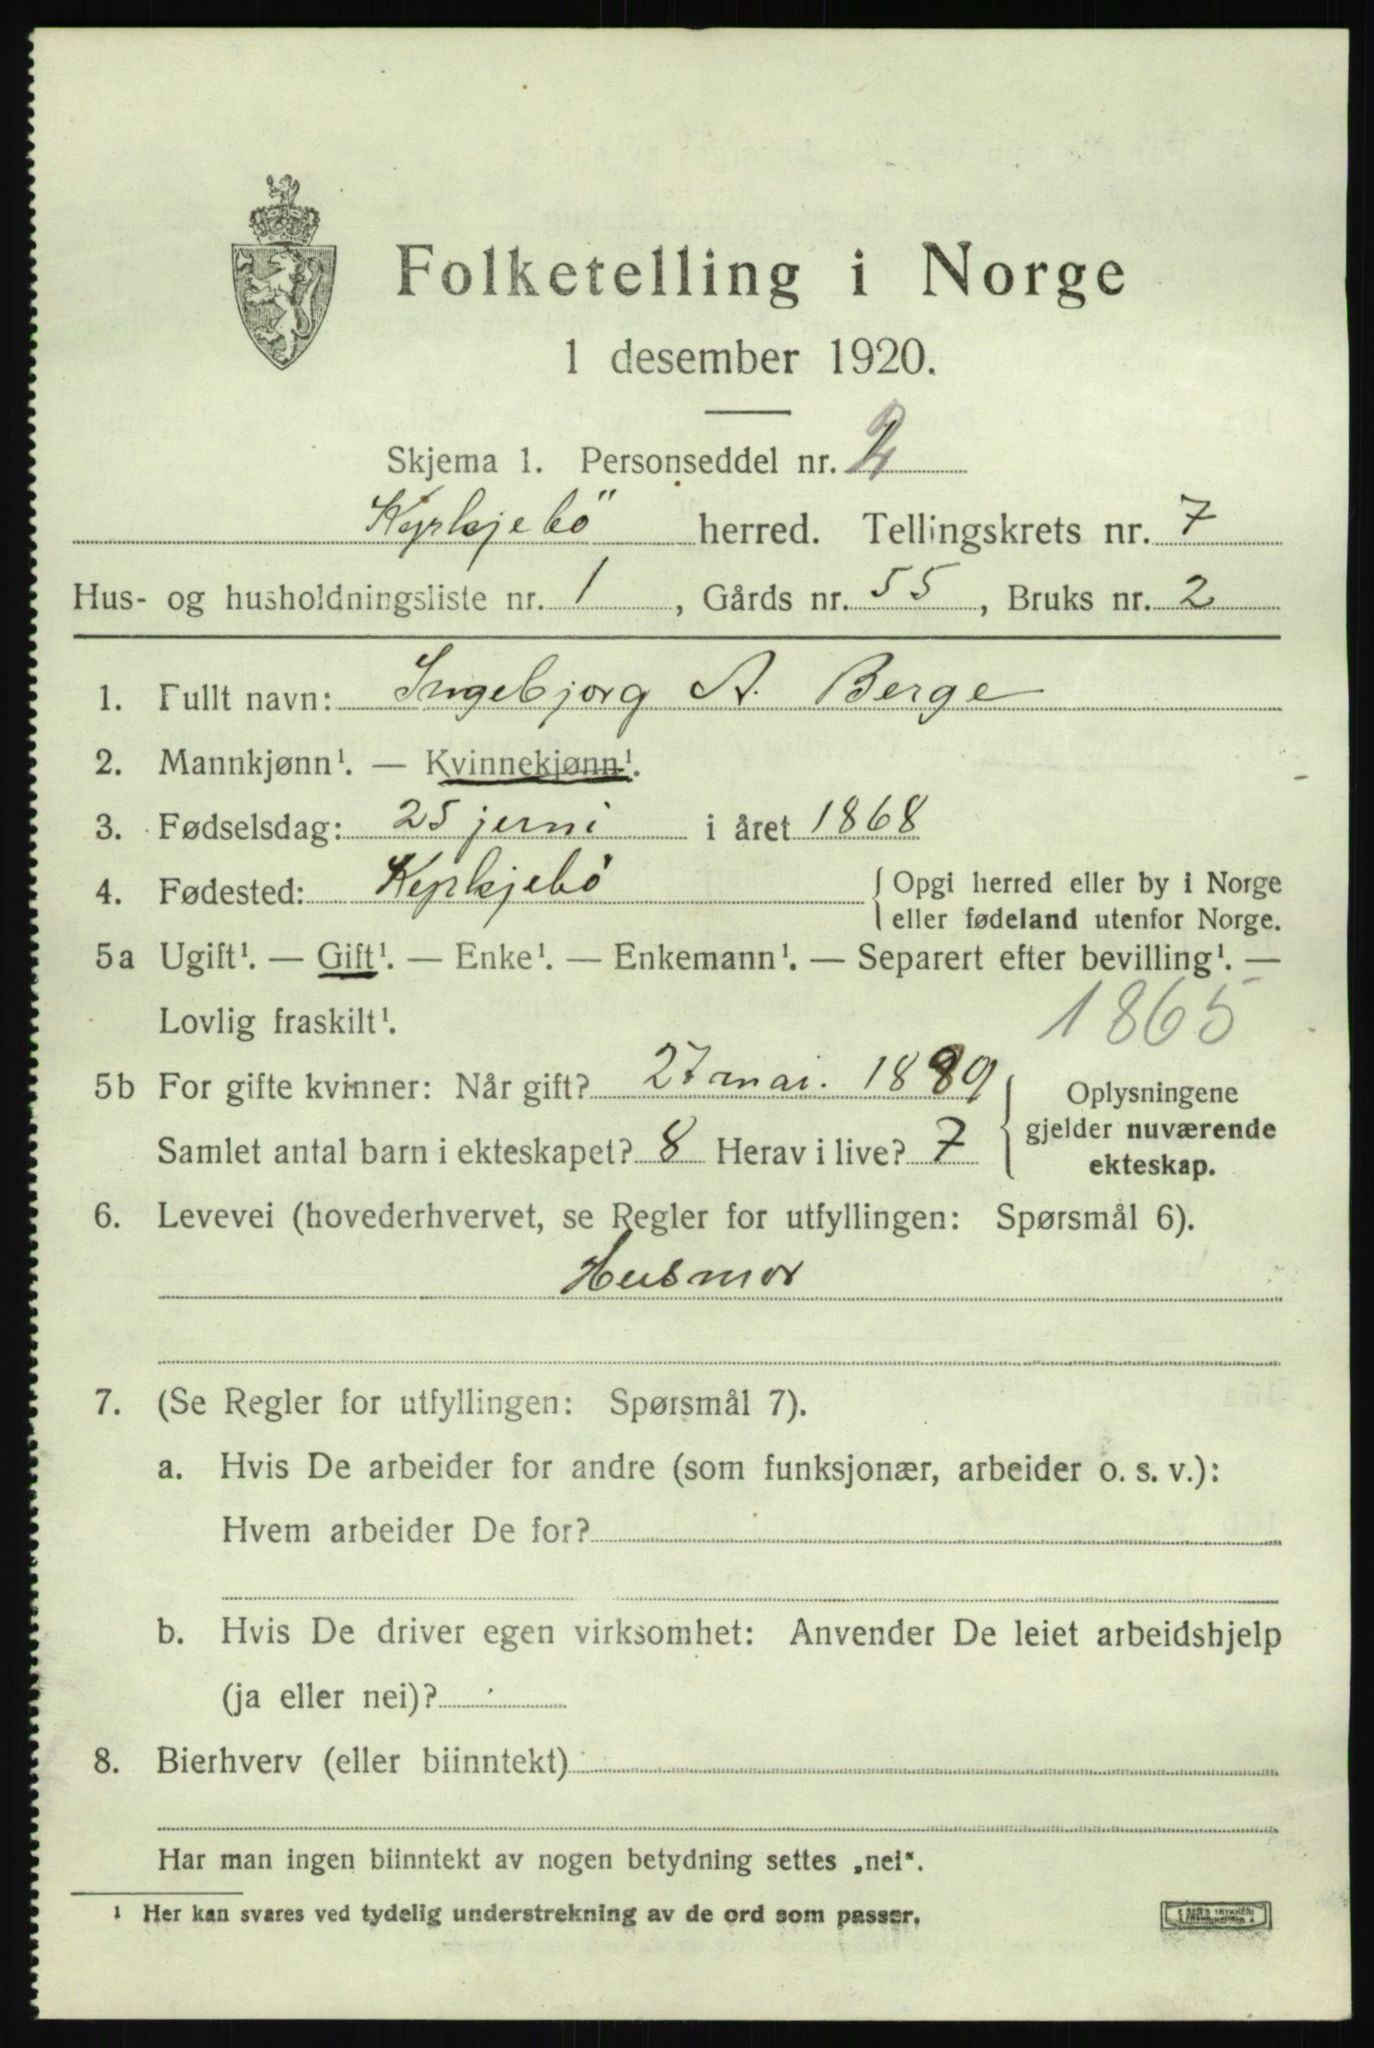 Folketelling i Norge
1 desember 1920.
Skjema 1. Personseddel nr. 2
Kyrkjebö herred. Tellingskrets nr. 7
Hus- og husholdningsliste nr. 1, Gårds nr. 55, Bruks nr. 2
1. Fullt navn: Ingebjorg A. Berge
2. Mannkjønn¹. — Kvinnekjønn¹.
3. Fødselsdag: 25 juni i året 1868
4. Fødested: Kyrkjebö { Opgi herred eller by i Norge
eller fødeland utenfor Norge.
5a Ugift¹. — Gift¹. — Enke¹. — Enkemann¹. — Separert efter bevilling¹. —
Lovlig fraskilt¹.
1865
5b For gifte kvinner: Når gift? 27 mai. 1889
Samlet antal barn i ekteskapet? 8 Herav i live? 7
{ Oplysningene
gjelder nuværende
ekteskap.
6. Levevei (hovederhvervet, se Regler for utfyllingen: Spørsmål 6).
Husmor
7. (Se Regler for utfyllingen: Spørsmål 7).
a. Hvis De arbeider for andre (som funksjonær, arbeider o. s. v.):
Hvem arbeider De for?
b. Hvis De driver egen virksomhet: Anvender De leiet arbeidshjelp
(ja eller nei)?
8. Bierhverv (eller biinntekt)
Har man ingen biinntekt av nogen betydning settes „nei“.
¹ Her kan svares ved tydelig understrekning av de ord som passer.